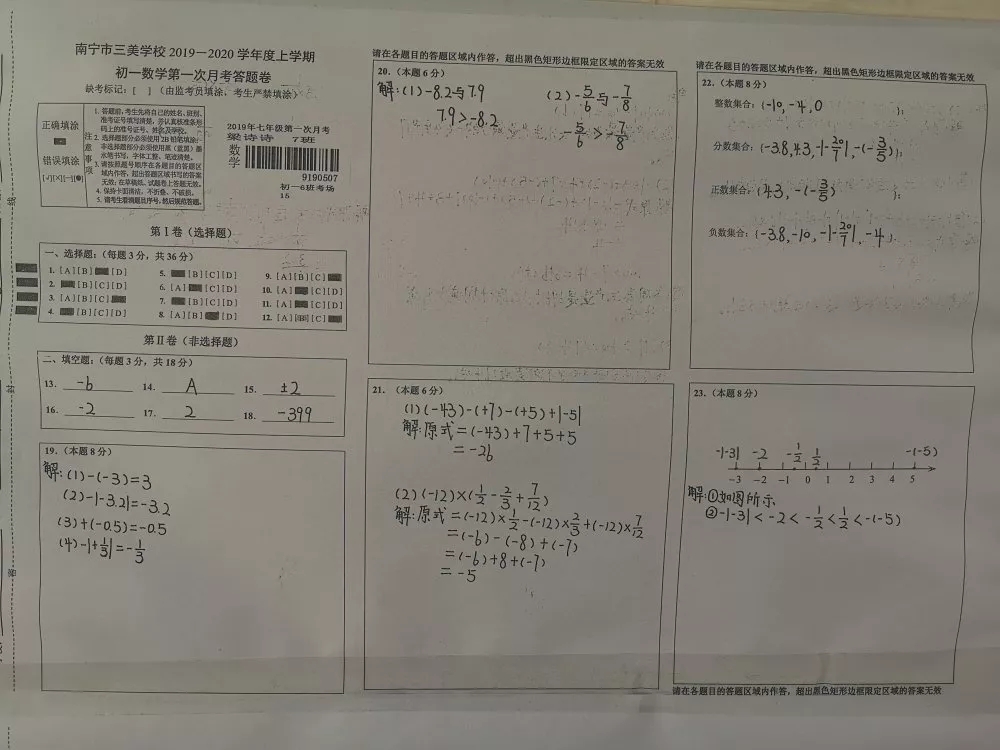 南宁市三美学校 2019－2020 学年度上学期
初一数学第一次月考答题卷
缺考标记：[ ]（由监考员填涂，考生严禁填涂）
正确填涂
错误填涂
注意事项
1. 答题前，考生先将自己的姓名、班别、
准考证号填写清楚，并认真核准条形
码上的准考证号、姓名及学校。
2. 选择题部分必须使用2B铅笔填涂；
非选择题部分必须使用黑（蓝黑）墨
水笔书写，字体工整、笔迹清楚。
3. 请按照题号顺序在各题目的答题区
域内作答，超出答题区域书写的答案
无效；在草稿纸、试题卷上答题无效。
4. 保持卡面清洁，不折叠、不破损。
2019年七年级第一次月考
梁诗诗 7班
数学
9190507
初一6班考场
15
第Ⅰ卷（选择题）
一、选择题：（每题 3 分，共 36 分）
1. [A][B] [D] 5. [B][C][D] 9. [A][B][C]
2. [B][C][D] 6. [A] [C][D] 10. [A] [C][D]
3. [A][B][C] 7. [B][C][D] 11. [A] [C][D]
4. [B][C][D] 8. [A][B] [D] 12. [A][B][C]
第Ⅱ卷（非选择题）
二、填空题：（每题 3 分，共 18 分）
13. -6 14. A 15. ±2
16. -2 17. 2 18. -399
19.（本题 8 分）
解：(1)-(-3)=3
(2)-|-3.2|=-3.2
(3)+(-0.5)=-0.5
(4)-|+1/3|=-1/3
请在各题目的答题区域内作答，超出黑色矩形边框限定区域的答案无效
20.（本题 6 分）
解：(1)-8.2与7.9 (2)-5/6与-7/8
7.9>-8.2 -5/6>-7/8
21.（本题 6 分）
(1)(-43)-(+7)-(+5)+|-5|
解：原式=(-43)+7+5+5
=-26
(2)(-12)×(1/2-2/3+7/12)
解：原式=(-12)×1/2-(-12)×2/3+(-12)×7/12
=(-6)-(-8)+(-7)
=(-6)+8+(-7)
=-5
请在各题目的答题区域内作答，超出黑色矩形边框限定区域的答案无效
22.（本题 8 分）
整数集合：{-10,-4,0 };
分数集合：{-3.8,43,-|-20/7|,-(-3/5)};
正数集合：{43,-(-3/5) };
负数集合：{-3.8,-10,-|-20/7|,-4}
23.（本题 8 分）
-|-3| -2 -1/2 1/2 -(-5)
-3 -2 -1 0 1 2 3 4 5
解：①如图所示
②-|-3|<-2<-1/2<1/2<-(-5)
请在各题目的答题区域内作答，超出黑色矩形边框限定区域的答案无效